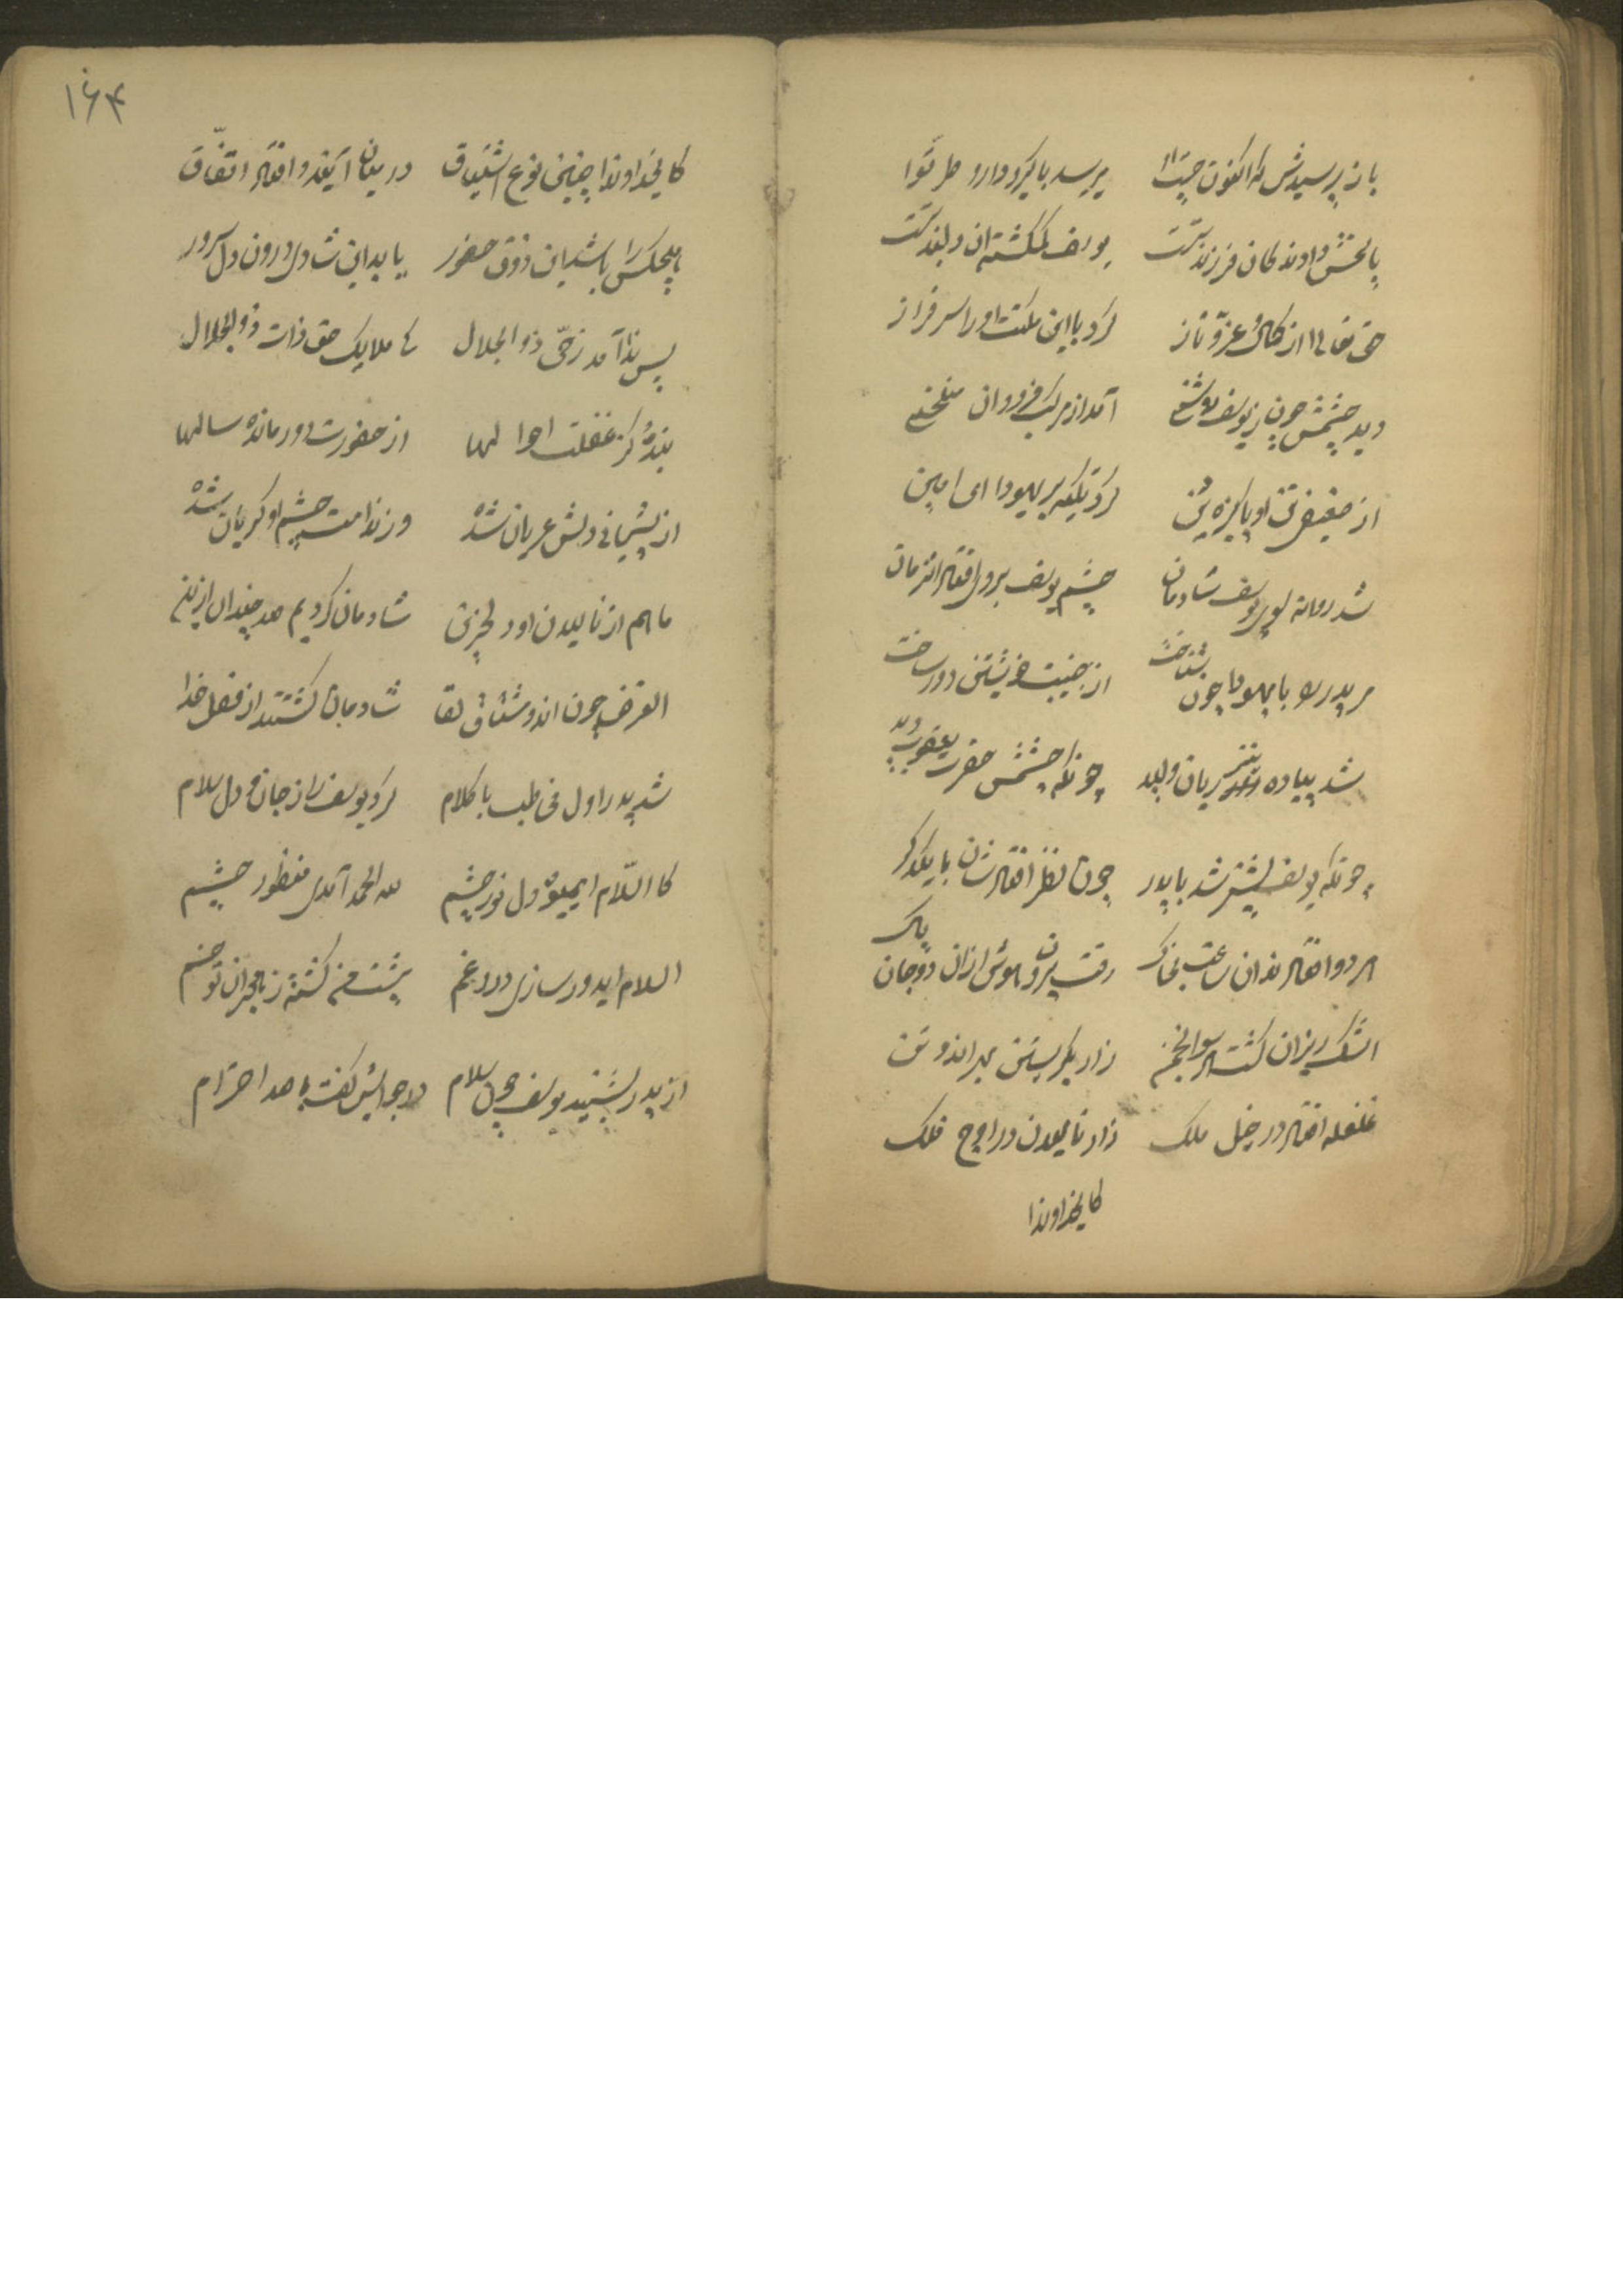 باز پرسیدش که اکنون چیست میرسد با کر و دارو
پاسخش دادند کان فرزند تست یوسف گمگشته آن دلبند تست
حق تعالی از کمال عز و ناز کرد با این سلطنت او را سرفراز
دید چشمش چون ز یوسف آمد از مرکب فرود آن منحنی
از ضعیفی تن او پاکیزه کرد تکیه بر یهودا ای امین
شد روانه سوی یوسف شادمان چشم یوسف بر وی افتاد آنزمان
مر پدر را با یهودا چون شناخت از جنیبت خویشتن دور ساخت
شد پیاده ریان ولید چونکه چشمش حضرت یعقوب دید
چونکه یوسف پیش شد با پدر چون نظر افتادشان با یکدگر
هر دو افتادند آن ساعت بخاک رفت بیرون هوش از آن دو جان پاک
اشک ریزان گشته انجمن زار بگریستن مرد و زن
غلغله افتاد در خیل ملک زار نالیدن در اوج فلک
کایخداوندا
۱۶۴
کایخداوندا چنین نوع اشتیاق در میان آیند و افتد اتفاق
هیچکس را باشد این ذوق حضور یا بداین شادی درون دل سرور
پس ندا آمد ز حی ذوالجلال کی ملایک حق ذات ذوالجلال
بندهٔ کز غفلت احوالها از حضورت دور مانده سالها
از پشیمانی دلش عریان شده وز ندامت چشم او گریان شده
ما هم از نالیدن او در حزین شادمان گردیم صد چندان ازین
الغرض چون آن دو مشتاق لقا شادمان گشتند از فضل خدا
شد پدر اول مخاطب با کلام کرد یوسف را ز جان و دل سلام
کالسلام ای میوهٔ دل نور چشم لله الحمد آمدی منظور چشم
السلام ای دور سازی درد و غم پشت من گشته ز هجران تو خم
از پدر بشنید یوسف چون سلام در جوابش گفت با صد احترام